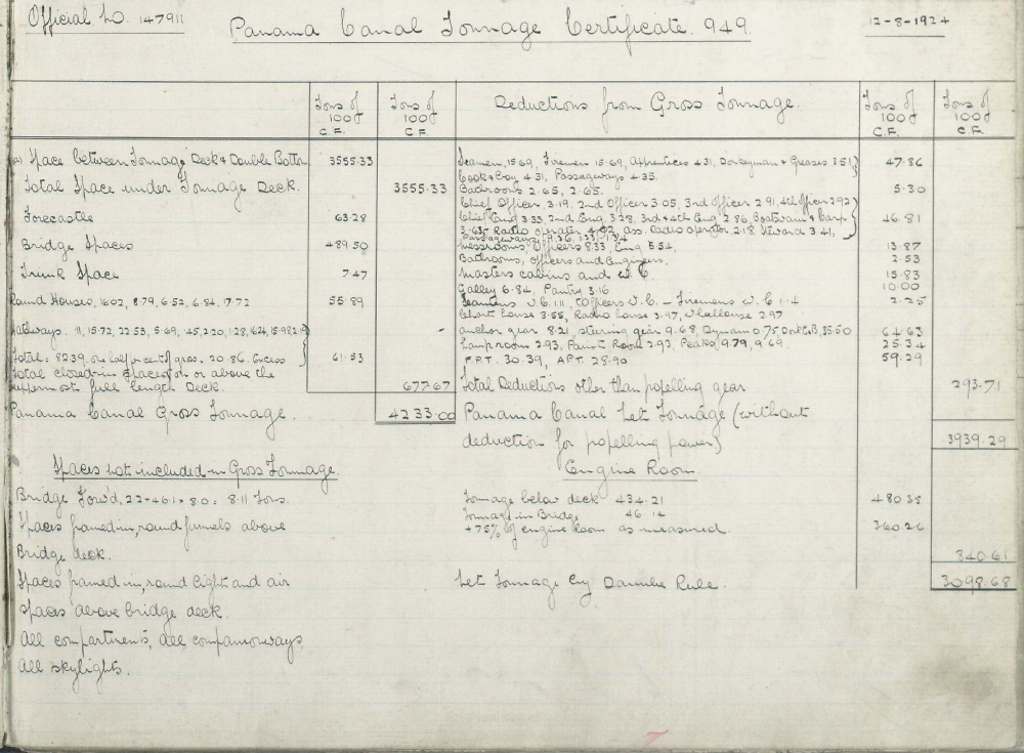 Official No. 147911
Panama Canal Tonnage Certificate. 949.
12-8-1924
Tons of 100 C.F.
Tons of 100 C.F.
Deductions from Gross Tonnage.
Tons of 100 C.F.
Tons of 100 C.F.
Space between Tonnage Deck & Double Bottom 3555.33
Total Space under Tonnage Deck. 3555.33
Forecastle 63.28
Bridge Spaces 489.50
Trunk Space 7.47
Round Houses, 16.02, 8.79, 6.52, 6.84, 17.72 55.89
Hatchways. 11, 15.72, 22.53, 5.69,
Total = 82.39, one half of cent of gross. 20.86. Excess 61.53
Total closed-in spaces on or above the
uppermost full length Deck. 677.67
Panama Canal Gross Tonnage. 4233.00
Spaces Not included in Gross Tonnage.
Bridge Forw'd, 22-46.1 × 8.0 = 8.11 Tons.
Spaces framed in, round funnels above
Bridge deck.
Spaces framed in, round light and air
spaces above bridge deck.
All compartments, all companionways,
All skylights.
Seamen, 15.69, Firemen 15.69, Apprentices 4.31, Donkeyman & Greasers 3.51
Cook & Boy 4.31, Passageways 4.35. 47.86
Bathrooms 2.65, 2.65. 5.30
Chief Officer 3.19, 2nd Officer 3.05, 3rd Officer 2.91, 4th Officer 2.92
Chief Eng 3.33, 2nd Eng. 3.28, 3rd & 4th Eng 2.86, Boatswain & Carp
3.63, Radio operator 4.02, ass. Radio operator 2.18, Steward 3.41, 46.81
Passageways,
Messrooms, Officers 8.33, Eng 5.54, 13.87
Bathrooms, Officers and Engineers. 2.53
Masters cabins and W.C 15.83
Galley 6.84, Pantry 3.16 10.00
Seamens W.C 1.11, Officers W.C. – Firemens W.C 1.14 2.25
Chart house 3.55, Radio house 3.97, Wheelhouse 2.97
Anchor gear 8.21, steering gear 9.68, Dynamo 0.75, 64.63
Lamproom 2.93, Paint Room 2.93, Peaks, 9.79, 9.69 25.34
F.P.T. 30.39, A.P.T. 28.90. 59.29
Total Deductions other than propelling gear 293.71
Panama Canal Net Tonnage (without
deduction for propelling power) 3939.29
Engine Room
Tonnage below deck 434.21 480.35
Tonnage in Bridge 46.14
+75% of engine Room as measured. 360.26
840.61
Net Tonnage by Danube Rule. 3098.68
7